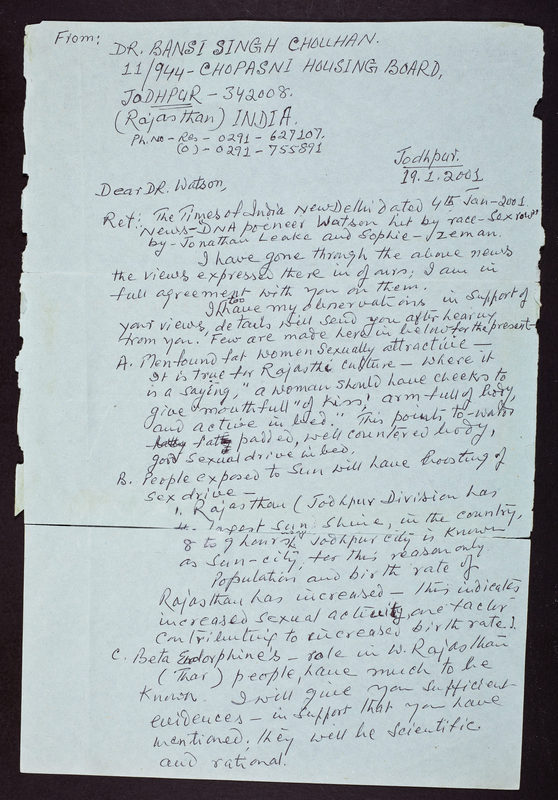 From:
DR. BANSI SINGH CHOUHAN.
11/944 - CHOPASNI HOUSING BOARD,
JODHPUR - 342008.
(Rajasthan) INDIA.
Ph. No - Res - 0291 - 627107.
(O) - 0291 - 755891
Jodhpur.
19.1.2001
Dear DR. Watson,
Ref: The Times of India New Delhi dated 4th Jan-2001
News-DNA poeneer Watson hit by race-Sex row"
by - Jonathan Leake and Sophie - Izeman.
I have gone through the above news
the views expressed there in of ours; I am in
full agreement with you on them.
I too have my observations in support of
your views, details will send you after hearing
from you. Few are made here in below for the present-
A. Men found fat women sexually attractive -
It is true for Rajasthi culture - where it
is a saying, "a woman should have cheeks to
give mouthfull" of kiss, arm-full of body,
and active in bed." This points to
fatty padded, well countered body,
good sexual drive in bed.
B. People exposed to Sun will have boosting of
sex drive -
1. Rajasthan (Jodhpur Division has
longest Sun Shine, in the country,
8 to 9 hours, Jodhpur city is Known
as Sun-city, for this reason only
Population and birth rate of
Rajasthan has increased - this indicates
increased sexual activity, one factor
Contributing to increased birth rate).
C. Beta Endorphine's - role in W. Rajasthan
(Thar) people, have much to be
Known. I will give you sufficient
evidences - in support that you have
mentioned; they will be scientific
and rational.